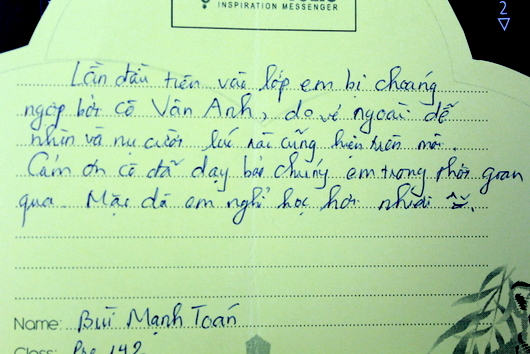 INSPIRATION MESSENGER
2
Lần đầu tiên vào lớp em bị choáng
ngợp bởi cô Vân Anh, do vẻ ngoài dễ
nhìn và nụ cười lúc nào cũng hiện trên môi.
Cảm ơn cô đã dạy bảo chúng em trong thời gian
qua. Mặc dù em nghỉ học hơi nhiều
Name: Bùi Mạnh Toán
Class: Pre 142